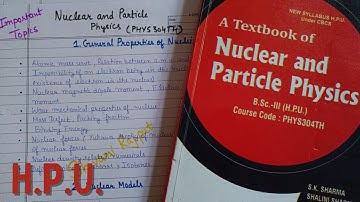 Important
Topics
Nuclear and Particle
Physics (PHYS304TH)
1. General Properties of Nuclei
Atomic mass unit, Relation between a.m.
Impossibility of an electron being in the nucleus
existence of electron in the nucleus
Nuclear magnetic dipole moment, Electric
moment
Wave mechanical properties of nucleus
Mass Defect, Packing fraction
Binding Energy
Nuclear forces
of nuclear force
Nuclear density related numericals
Isobars
Nuclear Models
H.P.U.
NEW SYLLABUS H.P.U.
Under CBCS
A Textbook of
Nuclear and
Particle Physics
B.Sc.-III (H.P.U.)
Course Code : PHYS304TH
S.K. SHARMA
SHALINI SHARMA